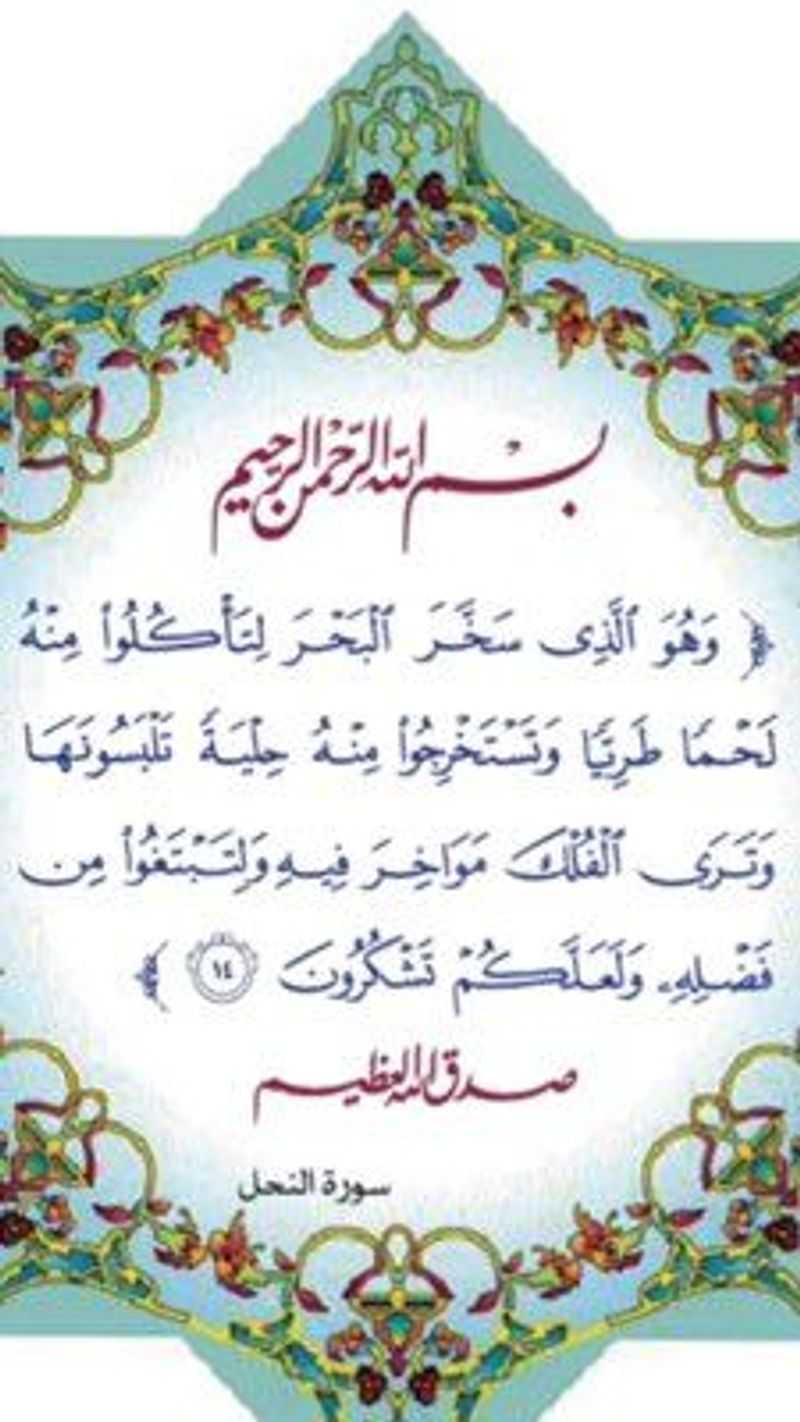 بسم الله الرحمن الرحيم
﴿ وَهُوَ ٱلَّذِى سَخَّرَ ٱلْبَحْرَ لِتَأْكُلُوا۟ مِنْهُ
لَحْمًا طَرِيًّا وَتَسْتَخْرِجُوا۟ مِنْهُ حِلْيَةً تَلْبَسُونَهَا
وَتَرَى ٱلْفُلْكَ مَوَاخِرَ فِيهِ وَلِتَبْتَغُوا۟ مِن
فَضْلِهِۦ وَلَعَلَّكُمْ تَشْكُرُونَ ١٤ ﴾
صدق الله العظيم
سورة النحل